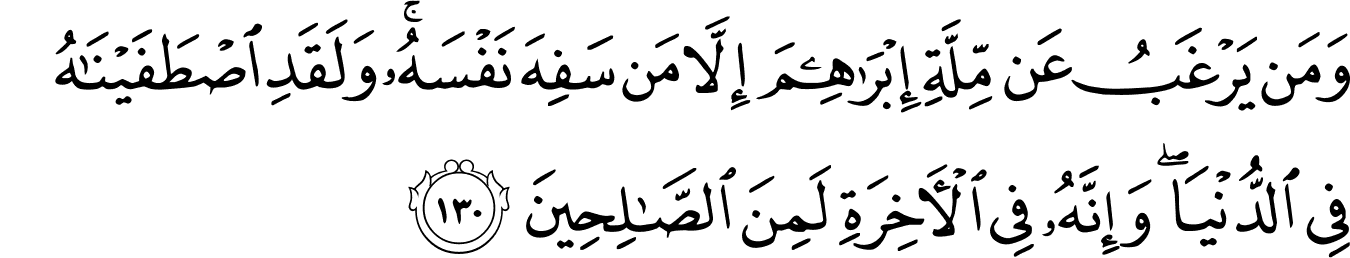 وَمَن يَرْغَبُ عَن مِّلَّةِ إِبْرَٰهِـۧمَ إِلَّا مَن سَفِهَ نَفْسَهُۥۚ وَلَقَدِ ٱصْطَفَيْنَـٰهُ
فِى ٱلدُّنْيَاۖ وَإِنَّهُۥ فِى ٱلْأَخِرَةِ لَمِنَ ٱلصَّـٰلِحِينَ ١٣٠